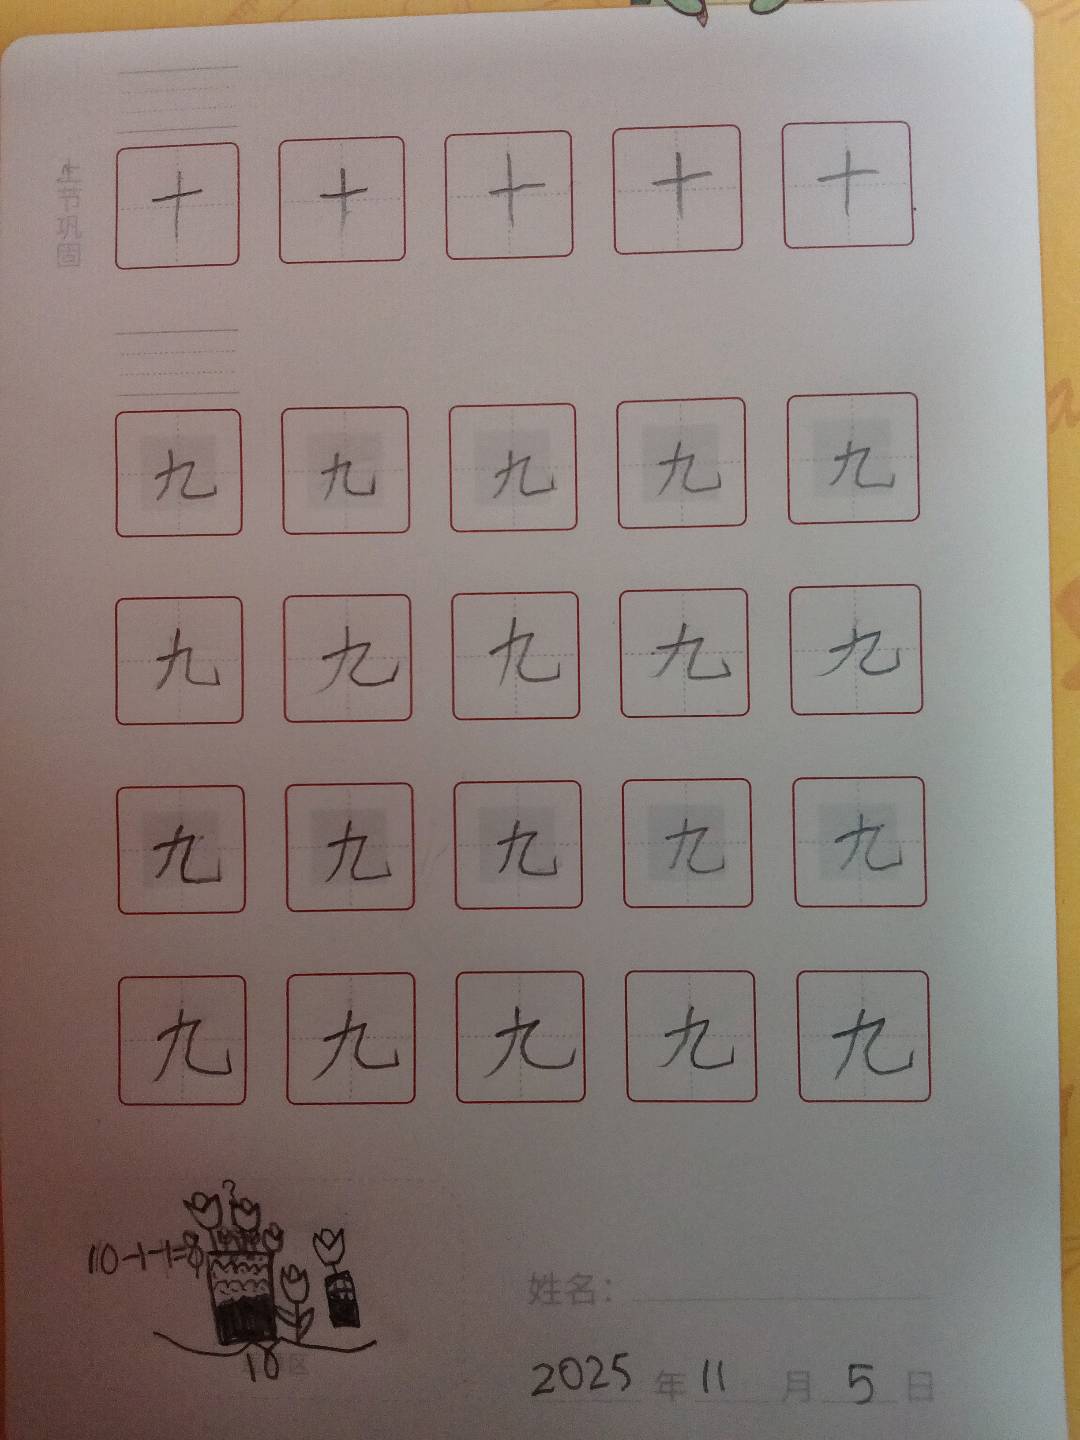 上节巩固
十 十 十 十 十
九 九 九 九 九
九 九 九 九 九
九 九 九 九 九
九 九 九 九 九
?
10-1-1=8
10
区
姓名：
2025 年 11 月 5 日